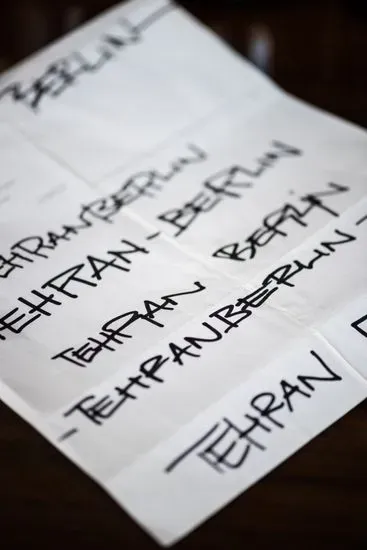 BERLIN
TEHRANBERLIN
TEHRAN-BERLIN
TEHRAN BERLIN
-TEHRANBERLIN-
TEHRAN